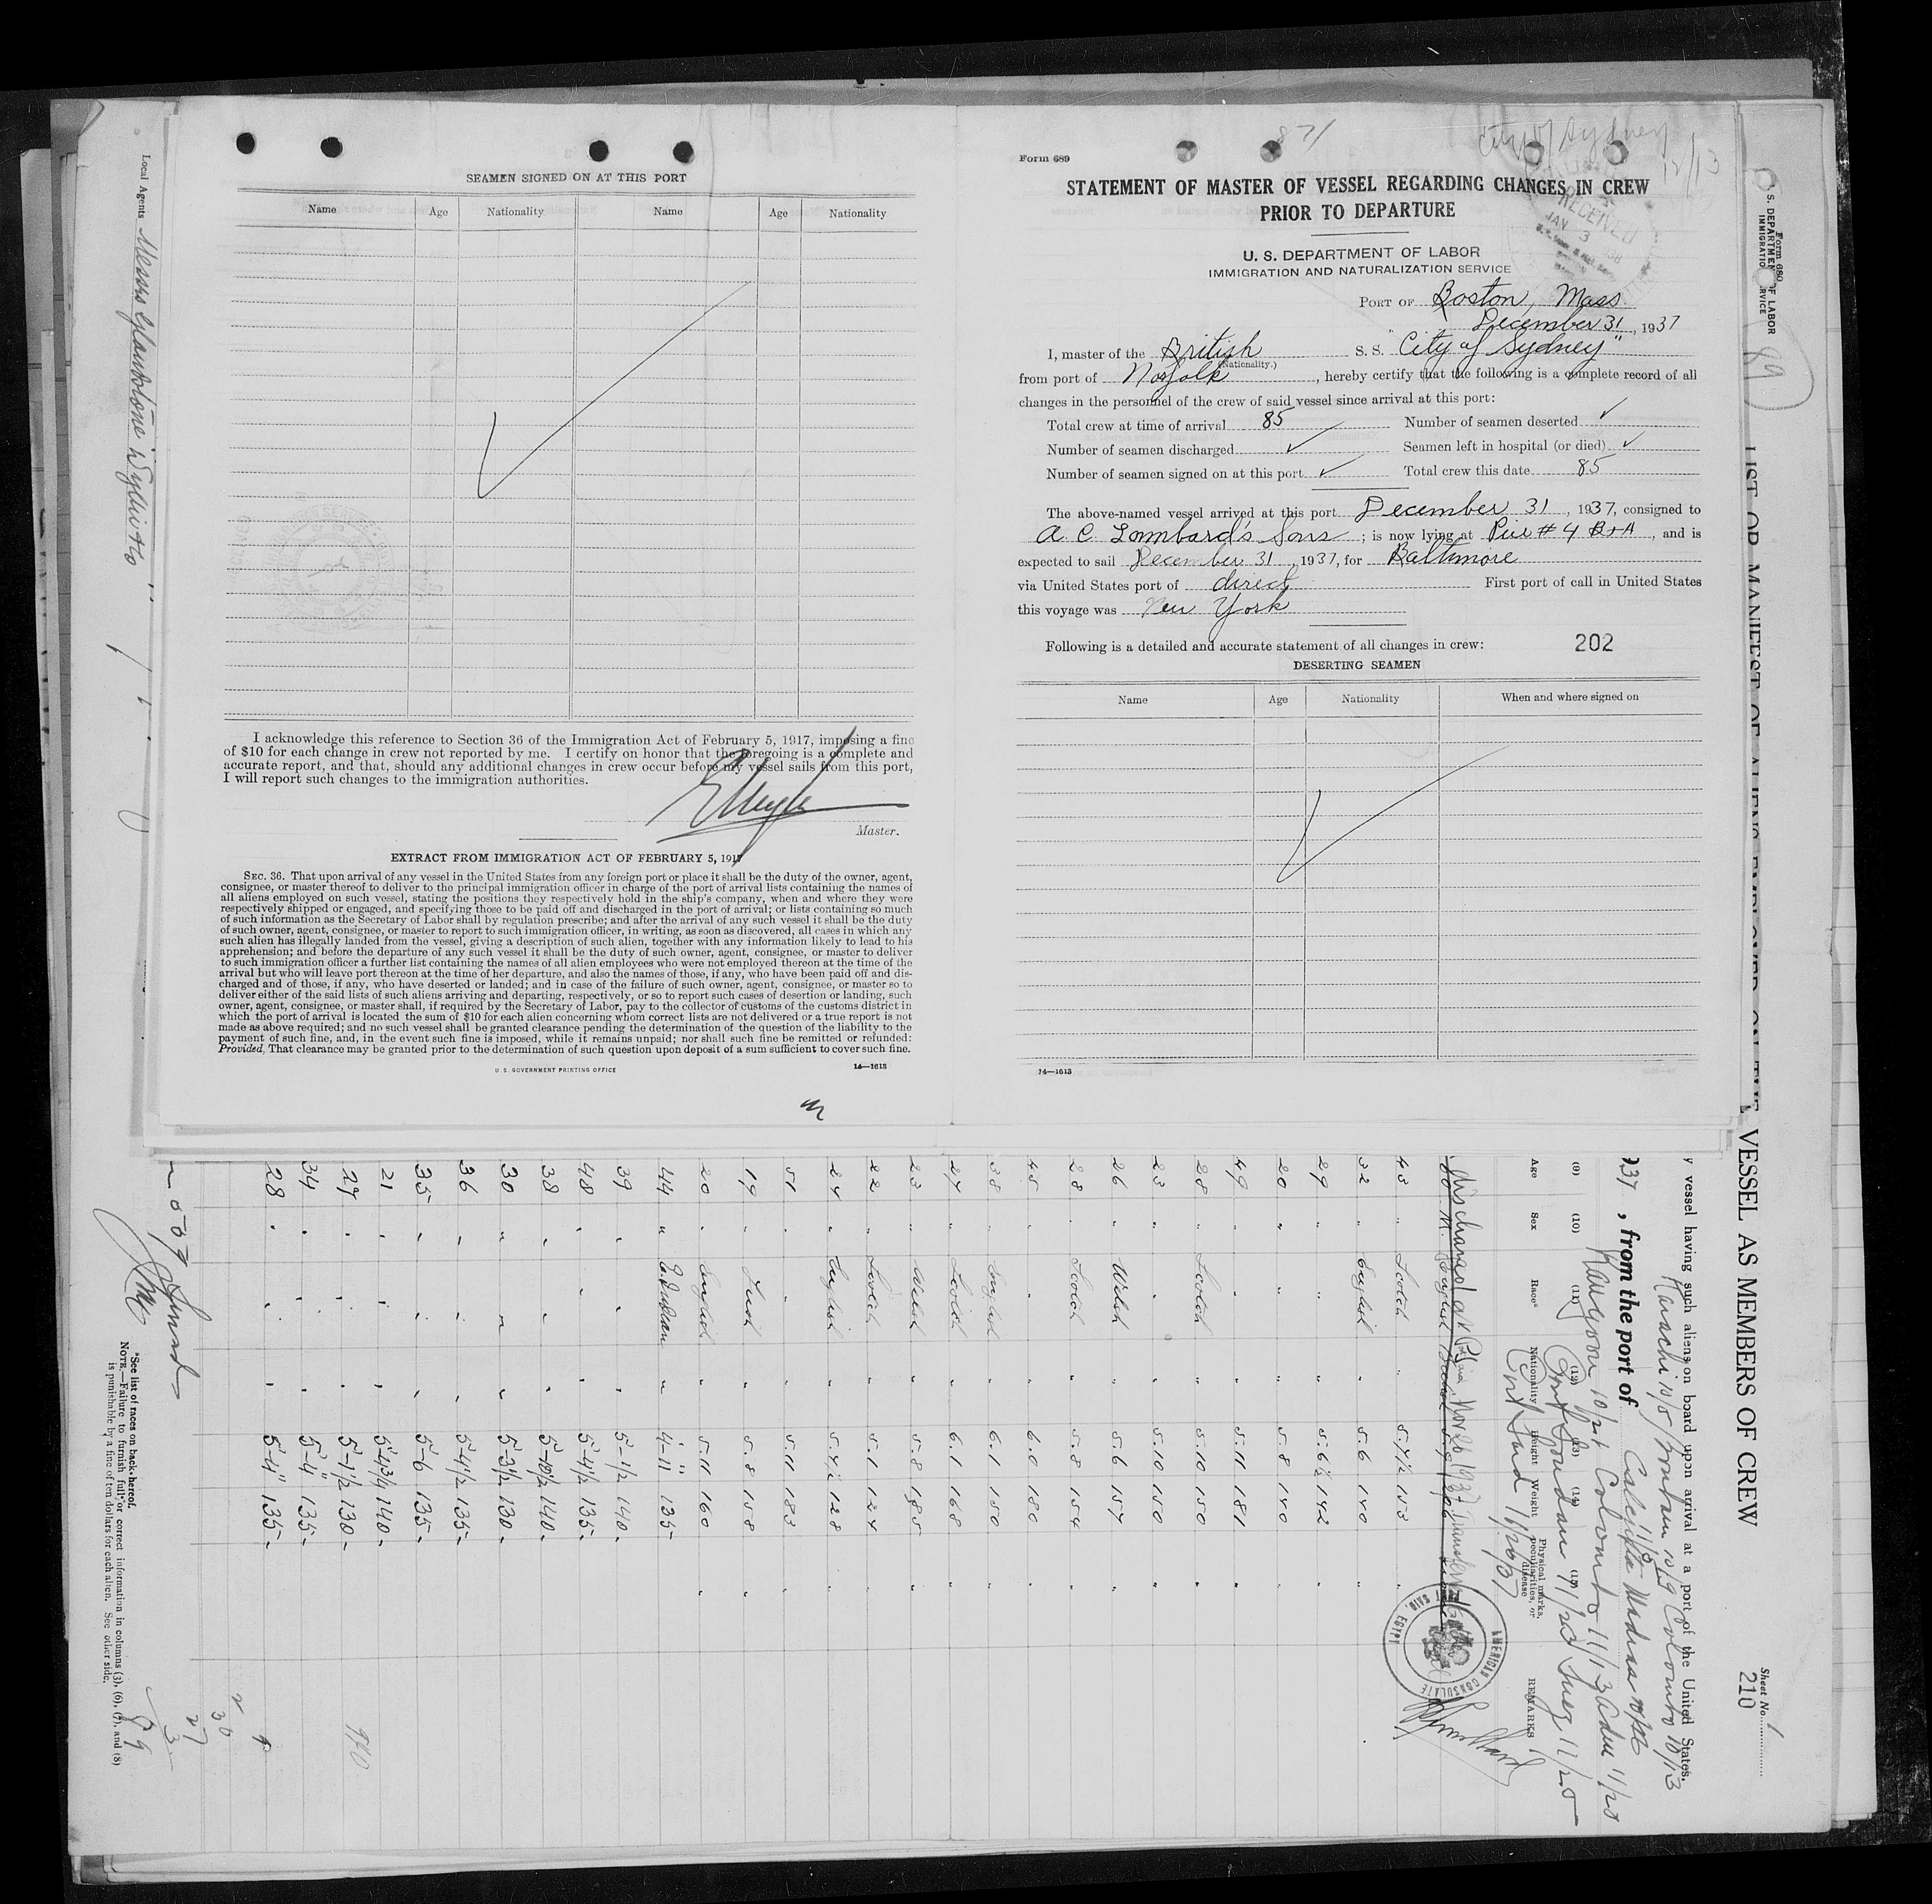 SEAMEN SIGNED ON AT THIS PORT
Name Age Nationality Name Age Nationality
I acknowledge this reference to Section 36 of the Immigration Act of February 5, 1917, imposing a fine
of $10 for each change in crew not reported by me. I certify on honor that the foregoing is a complete and
accurate report, and that, should any additional changes in crew occur before my vessel sails from this port,
I will report such changes to the immigration authorities.
Master.
EXTRACT FROM IMMIGRATION ACT OF FEBRUARY 5, 1917
SEC. 36. That upon arrival of any vessel in the United States from any foreign port or place it shall be the duty of the owner, agent,
consignee, or master thereof to deliver to the principal immigration officer in charge of the port of arrival lists containing the names of
all aliens employed on such vessel, stating the positions they respectively hold in the ship's company, when and where they were
respectively shipped or engaged, and specifying those to be paid off and discharged in the port of arrival; or lists containing so much
of such information as the Secretary of Labor shall by regulation prescribe; and after the arrival of any such vessel it shall be the duty
of such owner, agent, consignee, or master to report to such immigration officer, in writing, as soon as discovered, all cases in which any
such alien has illegally landed from the vessel, giving a description of such alien, together with any information likely to lead to his
apprehension; and before the departure of any such vessel it shall be the duty of such owner, agent, consignee, or master to deliver
to such immigration officer a further list containing the names of all alien employees who were not employed thereon at the time of the
arrival but who will leave port thereon at the time of her departure, and also the names of those, if any, who have been paid off and dis-
charged and of those, if any, who have deserted or landed; and in case of the failure of such owner, agent, consignee, or master so to
deliver either of the said lists of such aliens arriving and departing, respectively, or so to report such cases of desertion or landing, such
owner, agent, consignee, or master shall, if required by the Secretary of Labor, pay to the collector of customs of the customs district in
which the port of arrival is located the sum of $10 for each alien concerning whom correct lists are not delivered or a true report is not
made as above required; and no such vessel shall be granted clearance pending the determination of the question of the liability to the
payment of such fine, and, in the event such fine is imposed, while it remains unpaid; nor shall such fine be remitted or refunded:
Provided, That clearance may be granted prior to the determination of such question upon deposit of a sum sufficient to cover such fine.
U. S. GOVERNMENT PRINTING OFFICE 14—1613
871 City of Sydney
12/13
Form 689
STATEMENT OF MASTER OF VESSEL REGARDING CHANGES IN CREW
PRIOR TO DEPARTURE
RECEIVED
JAN 3
U. S. DEPARTMENT OF LABOR
IMMIGRATION AND NATURALIZATION SERVICE
PORT OF Boston, Mass.
December 31, 1937
I, master of the British S. S. "City of Sydney"
(Nationality.)
from port of Norfolk, hereby certify that the following is a complete record of all
changes in the personnel of the crew of said vessel since arrival at this port:
Total crew at time of arrival 85 Number of seamen deserted ✓
Number of seamen discharged ✓ Seamen left in hospital (or died) ✓
Number of seamen signed on at this port ✓ Total crew this date 85
The above-named vessel arrived at this port December 31, 1937, consigned to
A. C. Lombard's Sons; is now lying at Pier # 4 B+A, and is
expected to sail December 31, 1937, for Baltimore
via United States port of direct First port of call in United States
this voyage was New York
Following is a detailed and accurate statement of all changes in crew: 202
DESERTING SEAMEN
Name Age Nationality When and where signed on
14—1613
Form 680
U. S. DEPARTMENT OF LABOR
LIST OR MANIFEST OF ALIENS EMPLOYED ON THE VESSEL AS MEMBERS OF CREW
Sheet No. 1
210
y vessel having such aliens on board upon arrival at a port of the United States.
)37, from the port of
(9) (10) (11) (12) (13) (14) (15)
Age Sex Race* Nationality Height Weight Physical marks, peculiarities, or disease REMARKS
AMERICAN CONSULATE
PORT SAID, EGYPT
43 " Scotch " 5.7½ 153
32 " English " 5.6 140
29 " " " 5.6½ 142
20 " " " 5.8 140
49 " " " 5.11 181
28 " Scotch " 5.10 150
23 " " " 5.10 150
26 " Welsh " 5.6 157
28 " Scotch " 5.8 154
45 " " " 6.0 180
38 " English " 6.1 150
27 " Scotch " 6.1 168
23 " Welsh " 5.8 185
22 " Scotch " 5.1 124
24 " English " 5.4½ 128
51 " " " 5.11 183
19 " Irish " 5.8 158
20 " English " 5.11 160
44 " E. Indian " 4-11 135
39 " " " 5-1½ 140
48 " " " 5-4½ 135
38 " " " 5-10½ 140
30 " " " 5-3½ 130
36 " " " 5-4½ 135
35 " " " 5-6 135
21 " " " 5-4¾ 140
27 " " " 5-1½ 130
34 " " " 5-4 135
28 " " " 5-4 135
*See list of races on back hereof.
NOTE.—Failure to furnish full or correct information in columns (3), (6), (7), and (8)
is punishable by a fine of ten dollars for each alien. See other side.
Local Agents